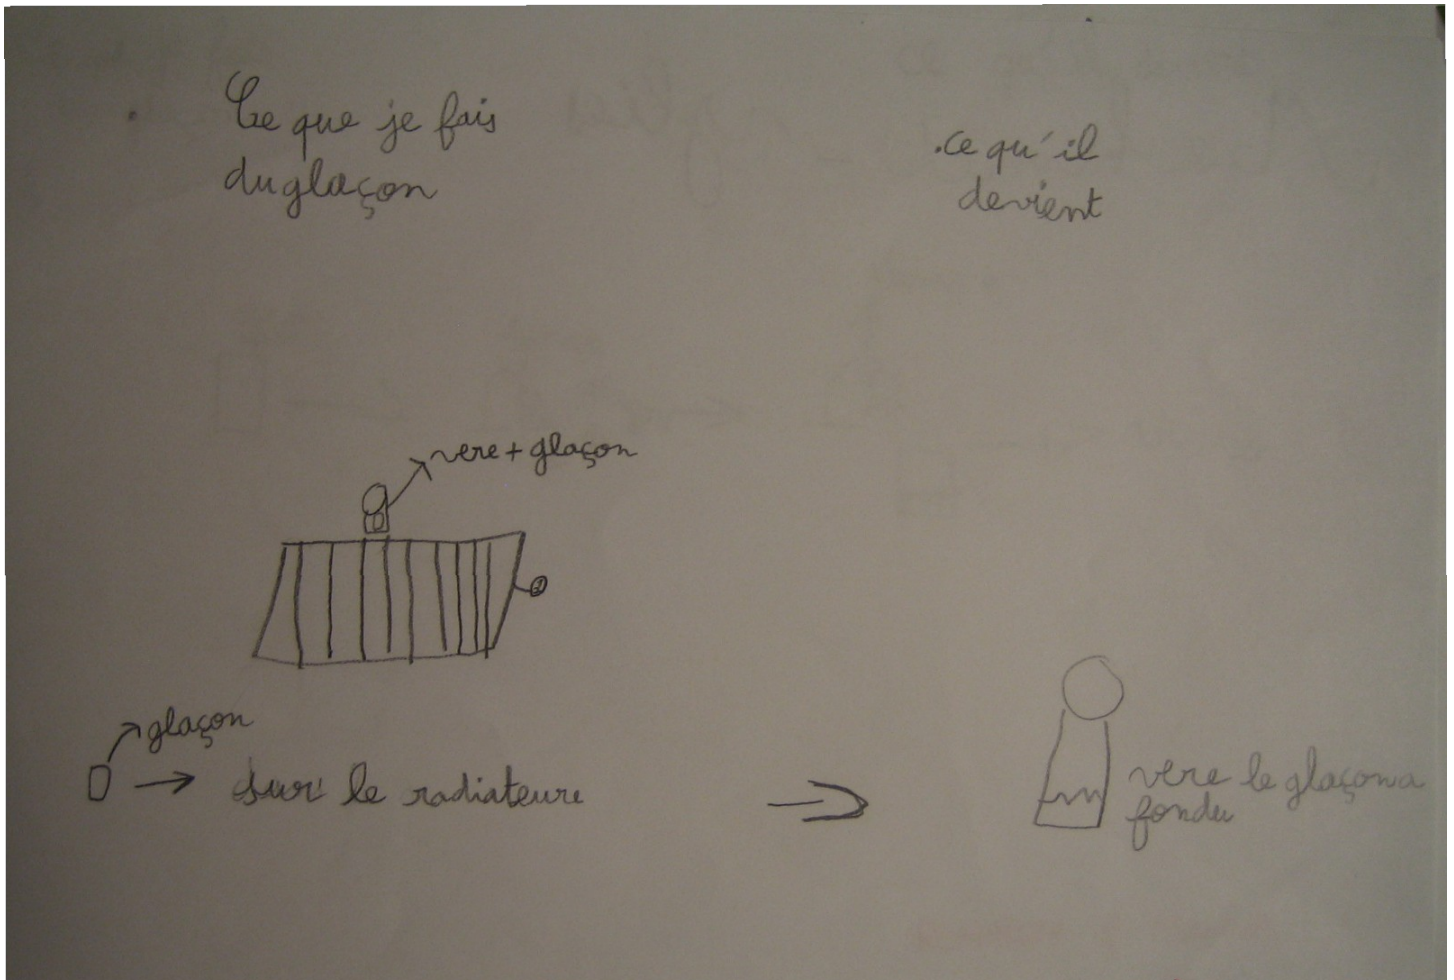 Ce que je fais
du glaçon
.ce qu'il
devient
vere + glaçon
glaçon
sur le radiateure
vere le glaçon a
fondu